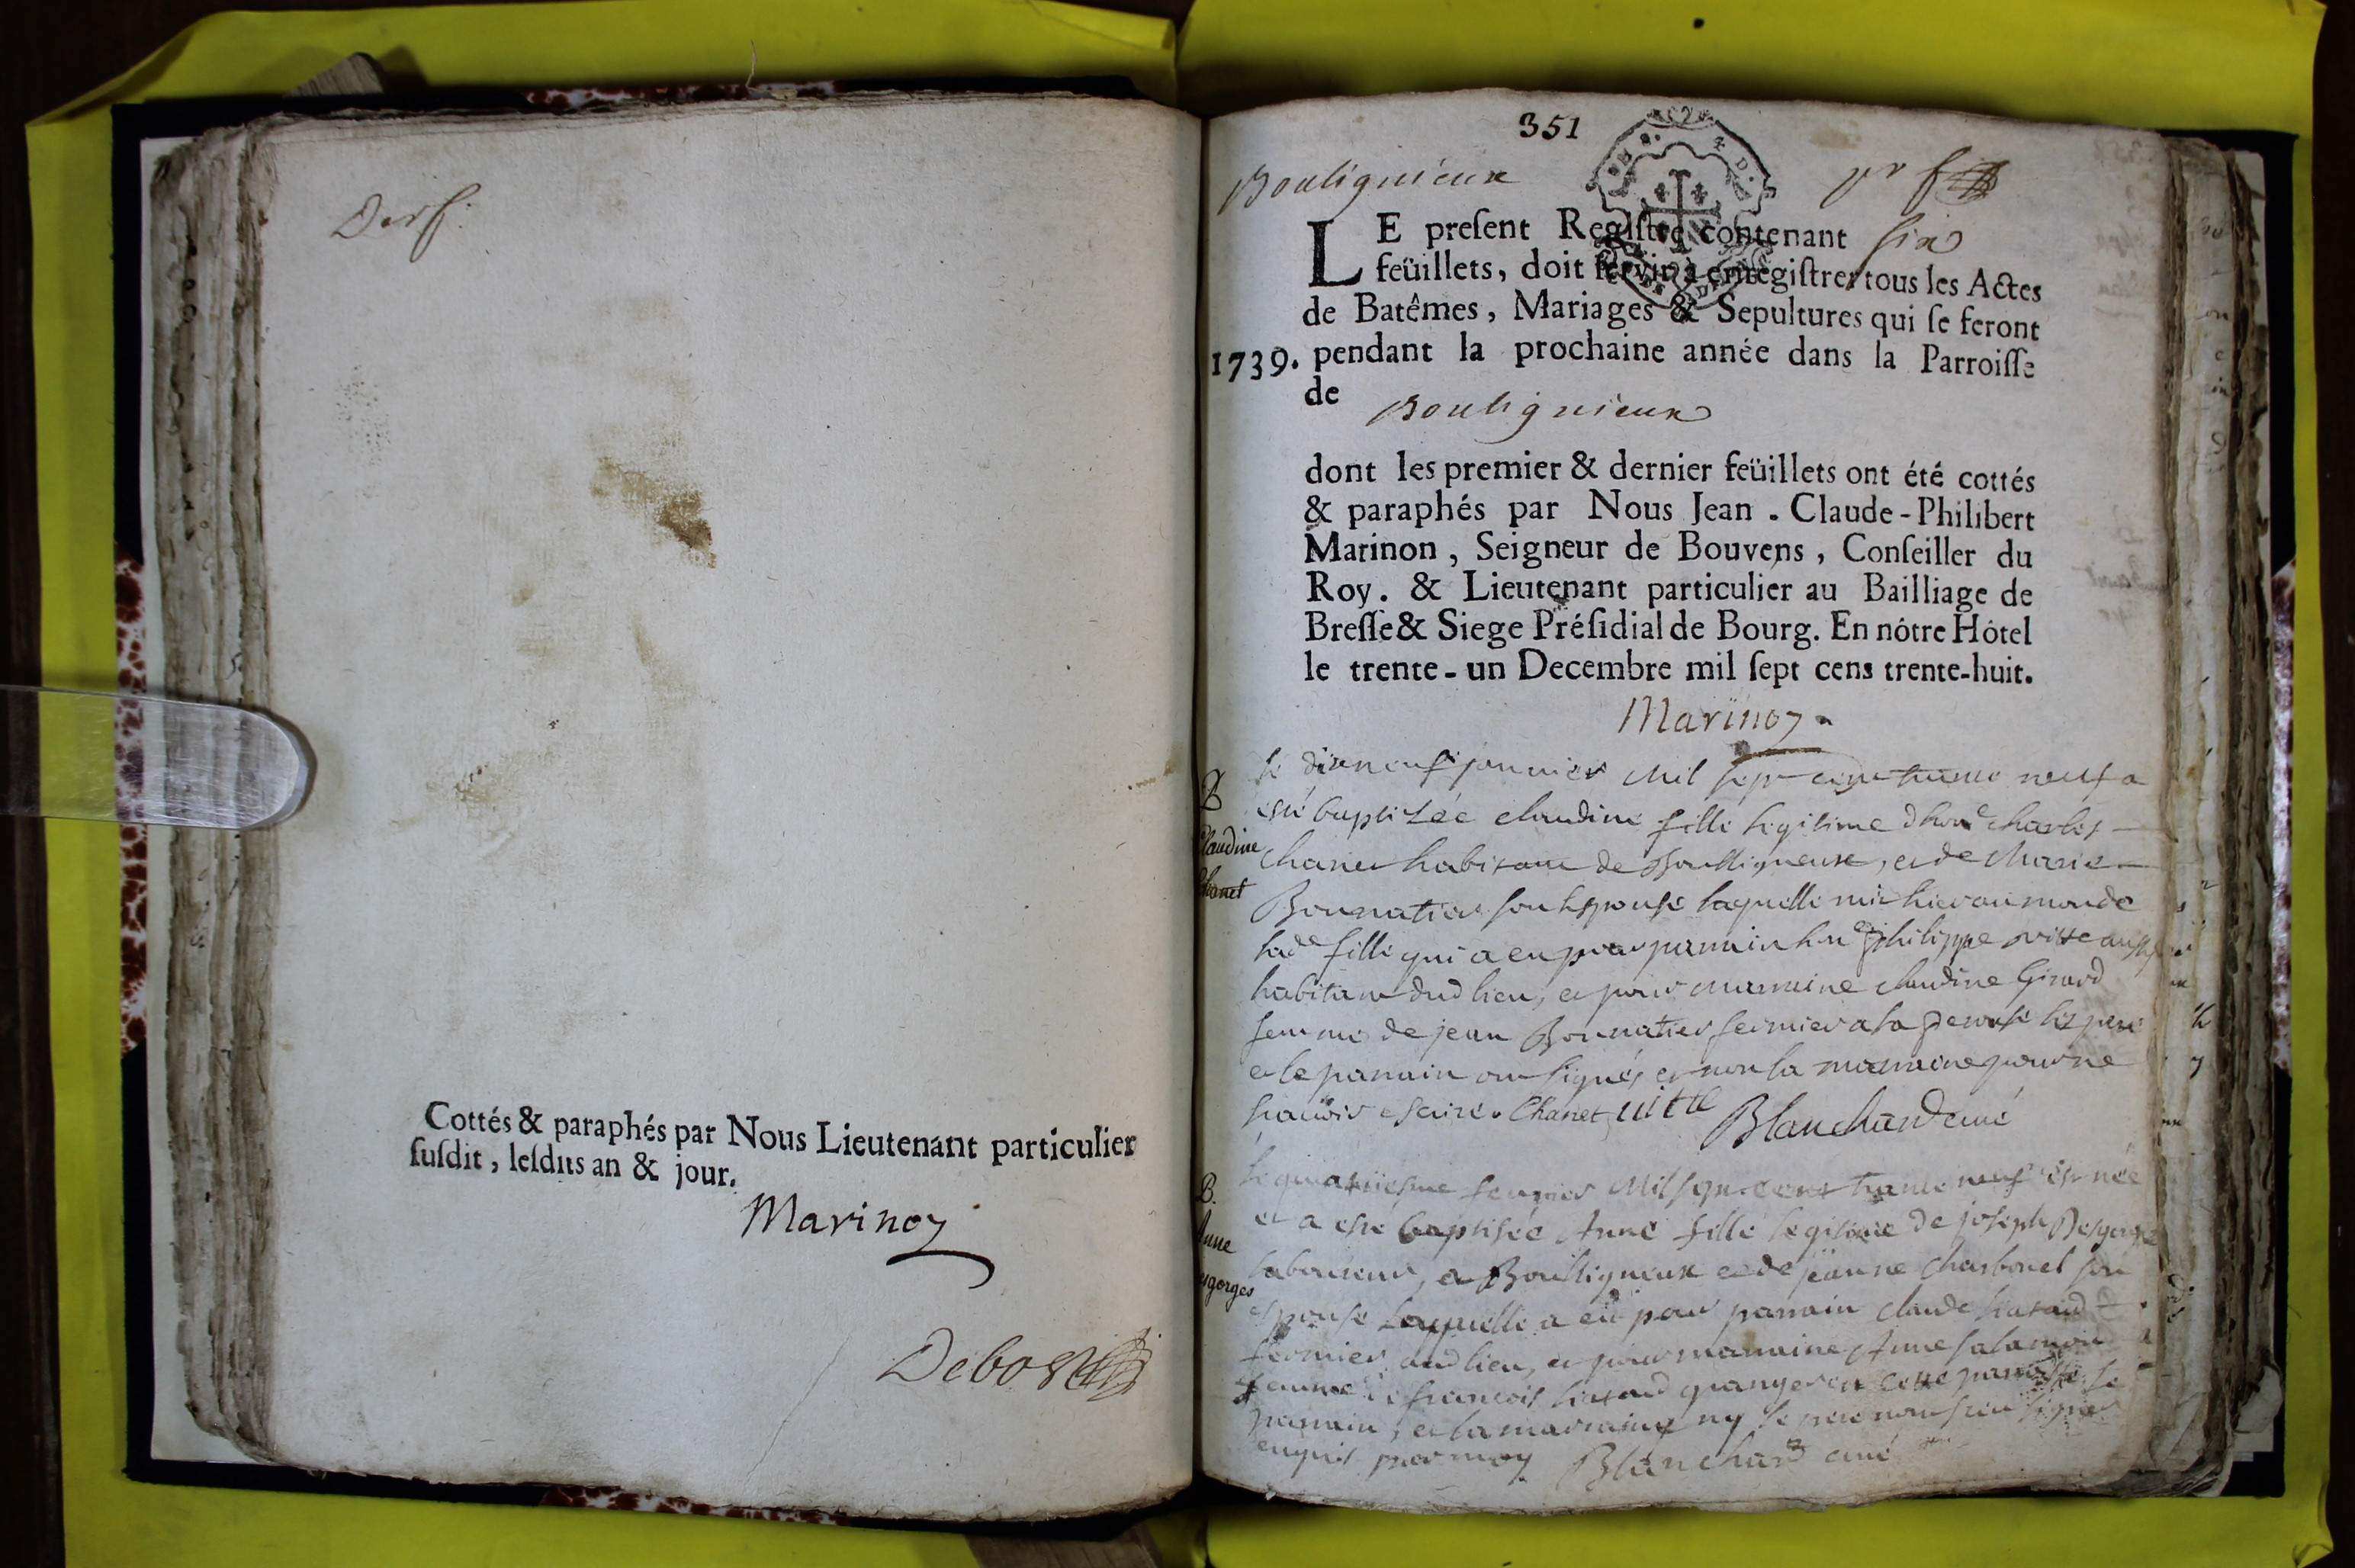 Der f.
Cottés & paraphés par Nous Lieutenant particulier
ſuſdit, leſdits an & jour.
Marinon
Debost
351
Boulignieux
pr f
LE preſent Regiſtre contenant six
feüillets, doit ſervir à enregiſtrer tous les Actes
de Batêmes, Mariages & Sepultures qui ſe feront
1739. pendant la prochaine année dans la Parroiſſe
de Boulignieux
dont les premier & dernier feüillets ont été cottés
& paraphés par Nous Jean . Claude-Philibert
Marinon, Seigneur de Bouvens, Conſeiller du
Roy. & Lieutenant particulier au Bailliage de
Breſſe & Siege Préſidial de Bourg. En nôtre Hôtel
le trente-un Decembre mil ſept cens trente-huit.
Marinon
B
Claudine
Chanet
Le dixneuf janvier mil sept cent trente neuf a
esté baptisée claudine fille legitime d'hone charles
Chanet habitant de Boulligneux, et de Marie
Bonnatier son Espouse laquelle mit hier au monde
lade fille qui a eu pour parrain hne philippe vitte aussy
habitant dud lieu, et pour marraine claudine Girard
femme de jean Bonnatier fermier a la les pere
et le parrain ont signés et non la marraine pour ne
sçavoir escrire. Chanet vitte Blanchard curé
B.
Anne
Desgorges
Le quatriesme fevrier Mil sept cent trante neuf est née
et a esté baptisée Anne fille legitime de joseph Desgorges
laboureur, a Boulligneux et de jeanne Charbonet son
espouse Laquelle a eu pour parrain claude
fermier aud lieu, et pour marraine Anne salamon
femme de françois granger en cette parroisse le
parrain, et la marraine ny le pere n'ont sceu signer
enquis par moy Blanchard curé